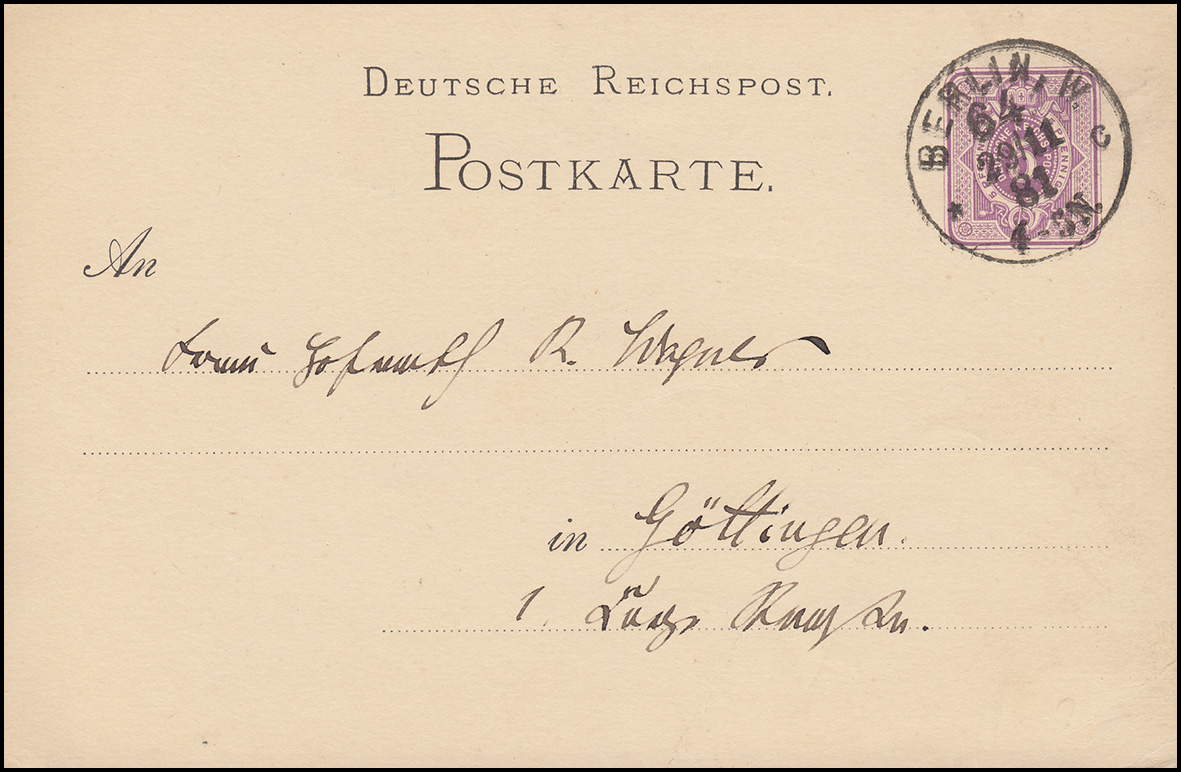 DEUTSCHE REICHSPOST.
POSTKARTE.
BERLIN, W.
64
29/11
81
4-5N.
* c
An
Frau Hofrath R. Wagner
in Göttingen.
1.